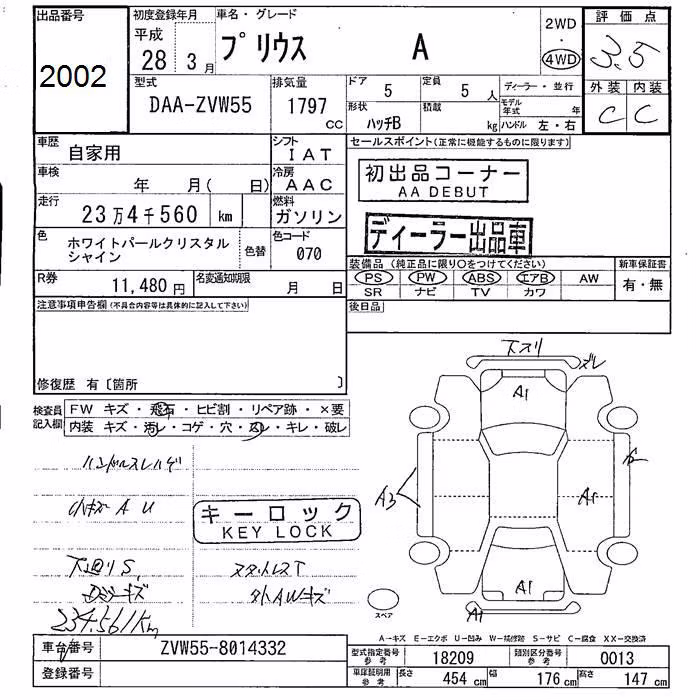 出品番号 初度登録年月 車名・グレード 2WD 評価点
2002 平成 28年 3月 プリウス A ・ 3.5
4WD
型式 排気量 ドア 定員 ディーラー・並行 外装 内装
DAA-ZVW55 1797 CC 5 5人 モデル年式 年 C C
形状 積載
ハッチB kg ハンドル 左・右
車歴 自家用 シフト IAT セールスポイント(正常に機能するものに限ります)
車検 年 月( 日) 冷房 AAC 初出品コーナー
AA DEBUT
走行 23万4千560 km 燃料 ガソリン
ディーラー出品車
色 ホワイトパールクリスタル 色替 色コード
シャイン 070
装備品(純正品に限り○をつけてください) 新車保証書
R券 11,480円 名変通知期限 月 日 PS PW ABS エアB AW 有・無
SR ナビ TV カワ
注意事項申告欄(不具合内容等は具体的に記入して下さい) 後日品
修復歴 有〔箇所 〕
検査員 FW キズ・飛石・ヒビ割・リペア跡・×要
記入欄 内装 キズ・汚レ・コゲ・穴・スレ・キレ・破レ
下スリ
ズレ
A1
ハンドルスレハゲ
A3
A1
小キズ A U
キーロック
KEY LOCK
下廻りS
スタットレスT
ドアミラーキズ
外AWキズ
A1
A1
スペア
234,561km
A－キズ E－エクボ U－凹み W－補修跡 S－サビ C－腐食 XX－交換済
車台番号 ZVW55-8014332 型式指定番号 参考 18209 類別区分番号 参考 0013
登録番号 車庫証明用 参考 長さ 454 cm 幅 176 cm 高さ 147 cm